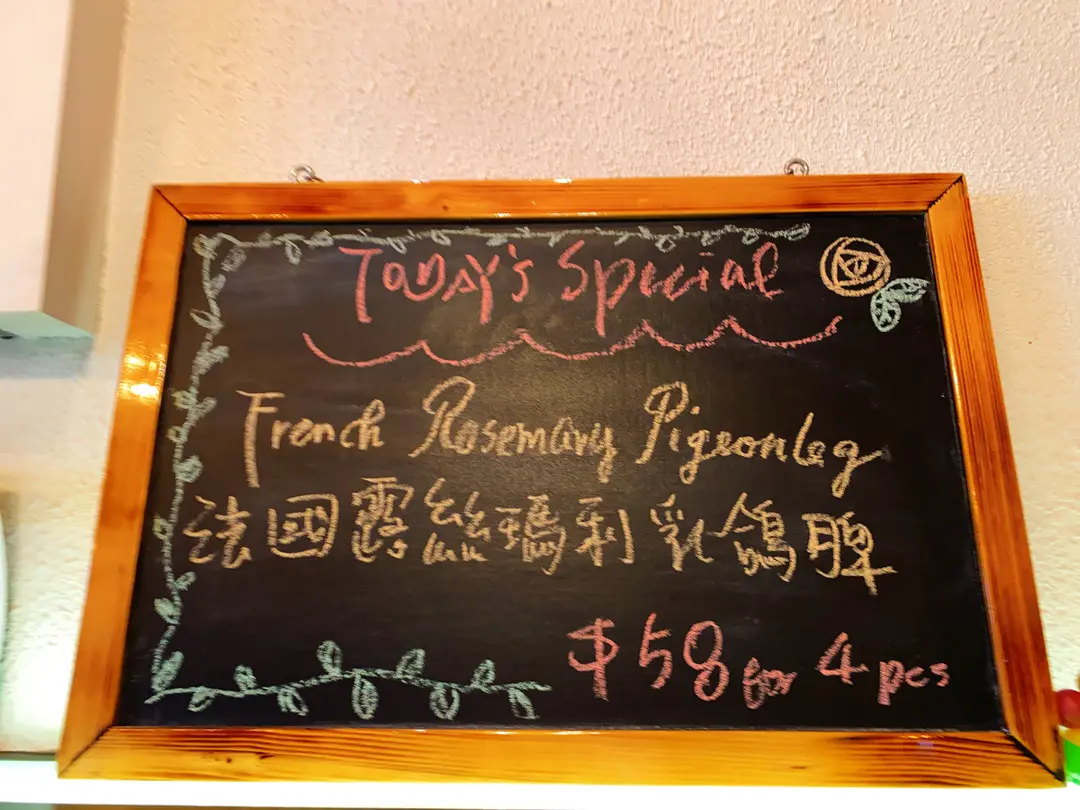 Today's Special
French Rosemary Pigeonleg
法國露絲瑪利乳鴿脾
$58 for 4 pcs